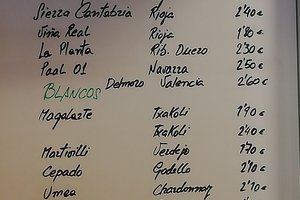 Sierra Cantabria Rioja 2'40 €
Viña Real Rioja 1'80 €
La Planta Rib. Duero 2'30 €
Paal 01 Navarra 2'50 €
Delmoro Valencia 2'60 €
BLANCOS
Magalarte Txakoli 1'90 €
Txakoli 2'40 €
Martivilli Verdejo 1'70 €
Cepado Godello 2'10 €
Umea Chardonnay 2'10 €